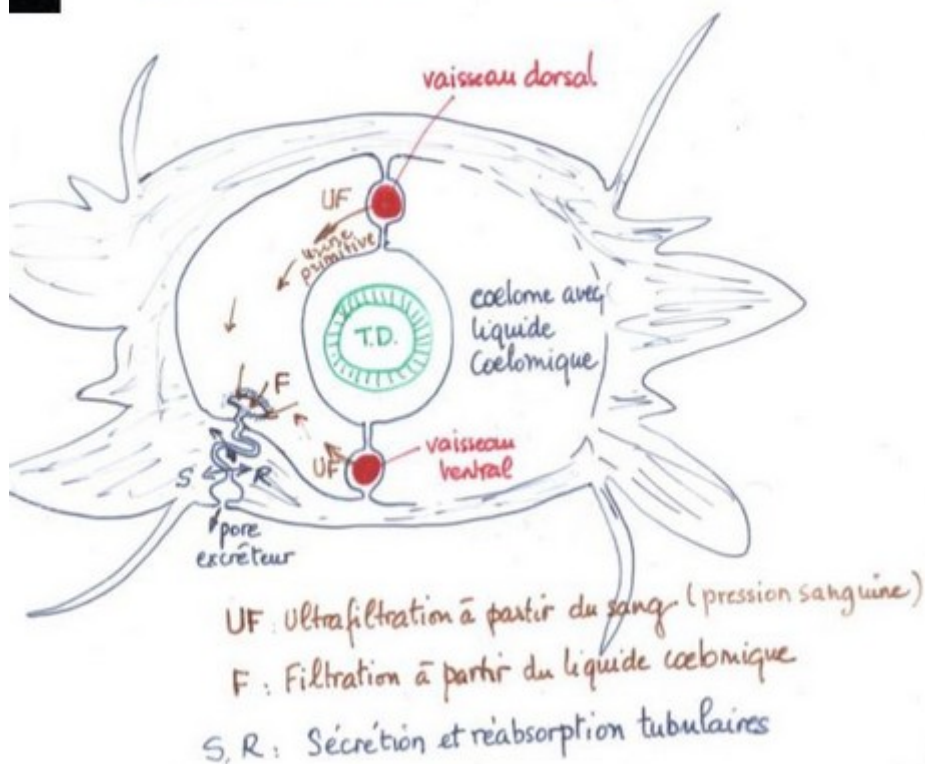 vaisseau dorsal
UF
urine
primitive
coelome avec
liquide
Coelomique
T.D.
F
vaisseau
ventral
UF
S R
pore
excréteur
UF : Ultrafiltration à partir du sang (pression sanguine)
F : Filtration à partir du liquide coelomique
S, R : Sécrétion et réabsorption tubulaires